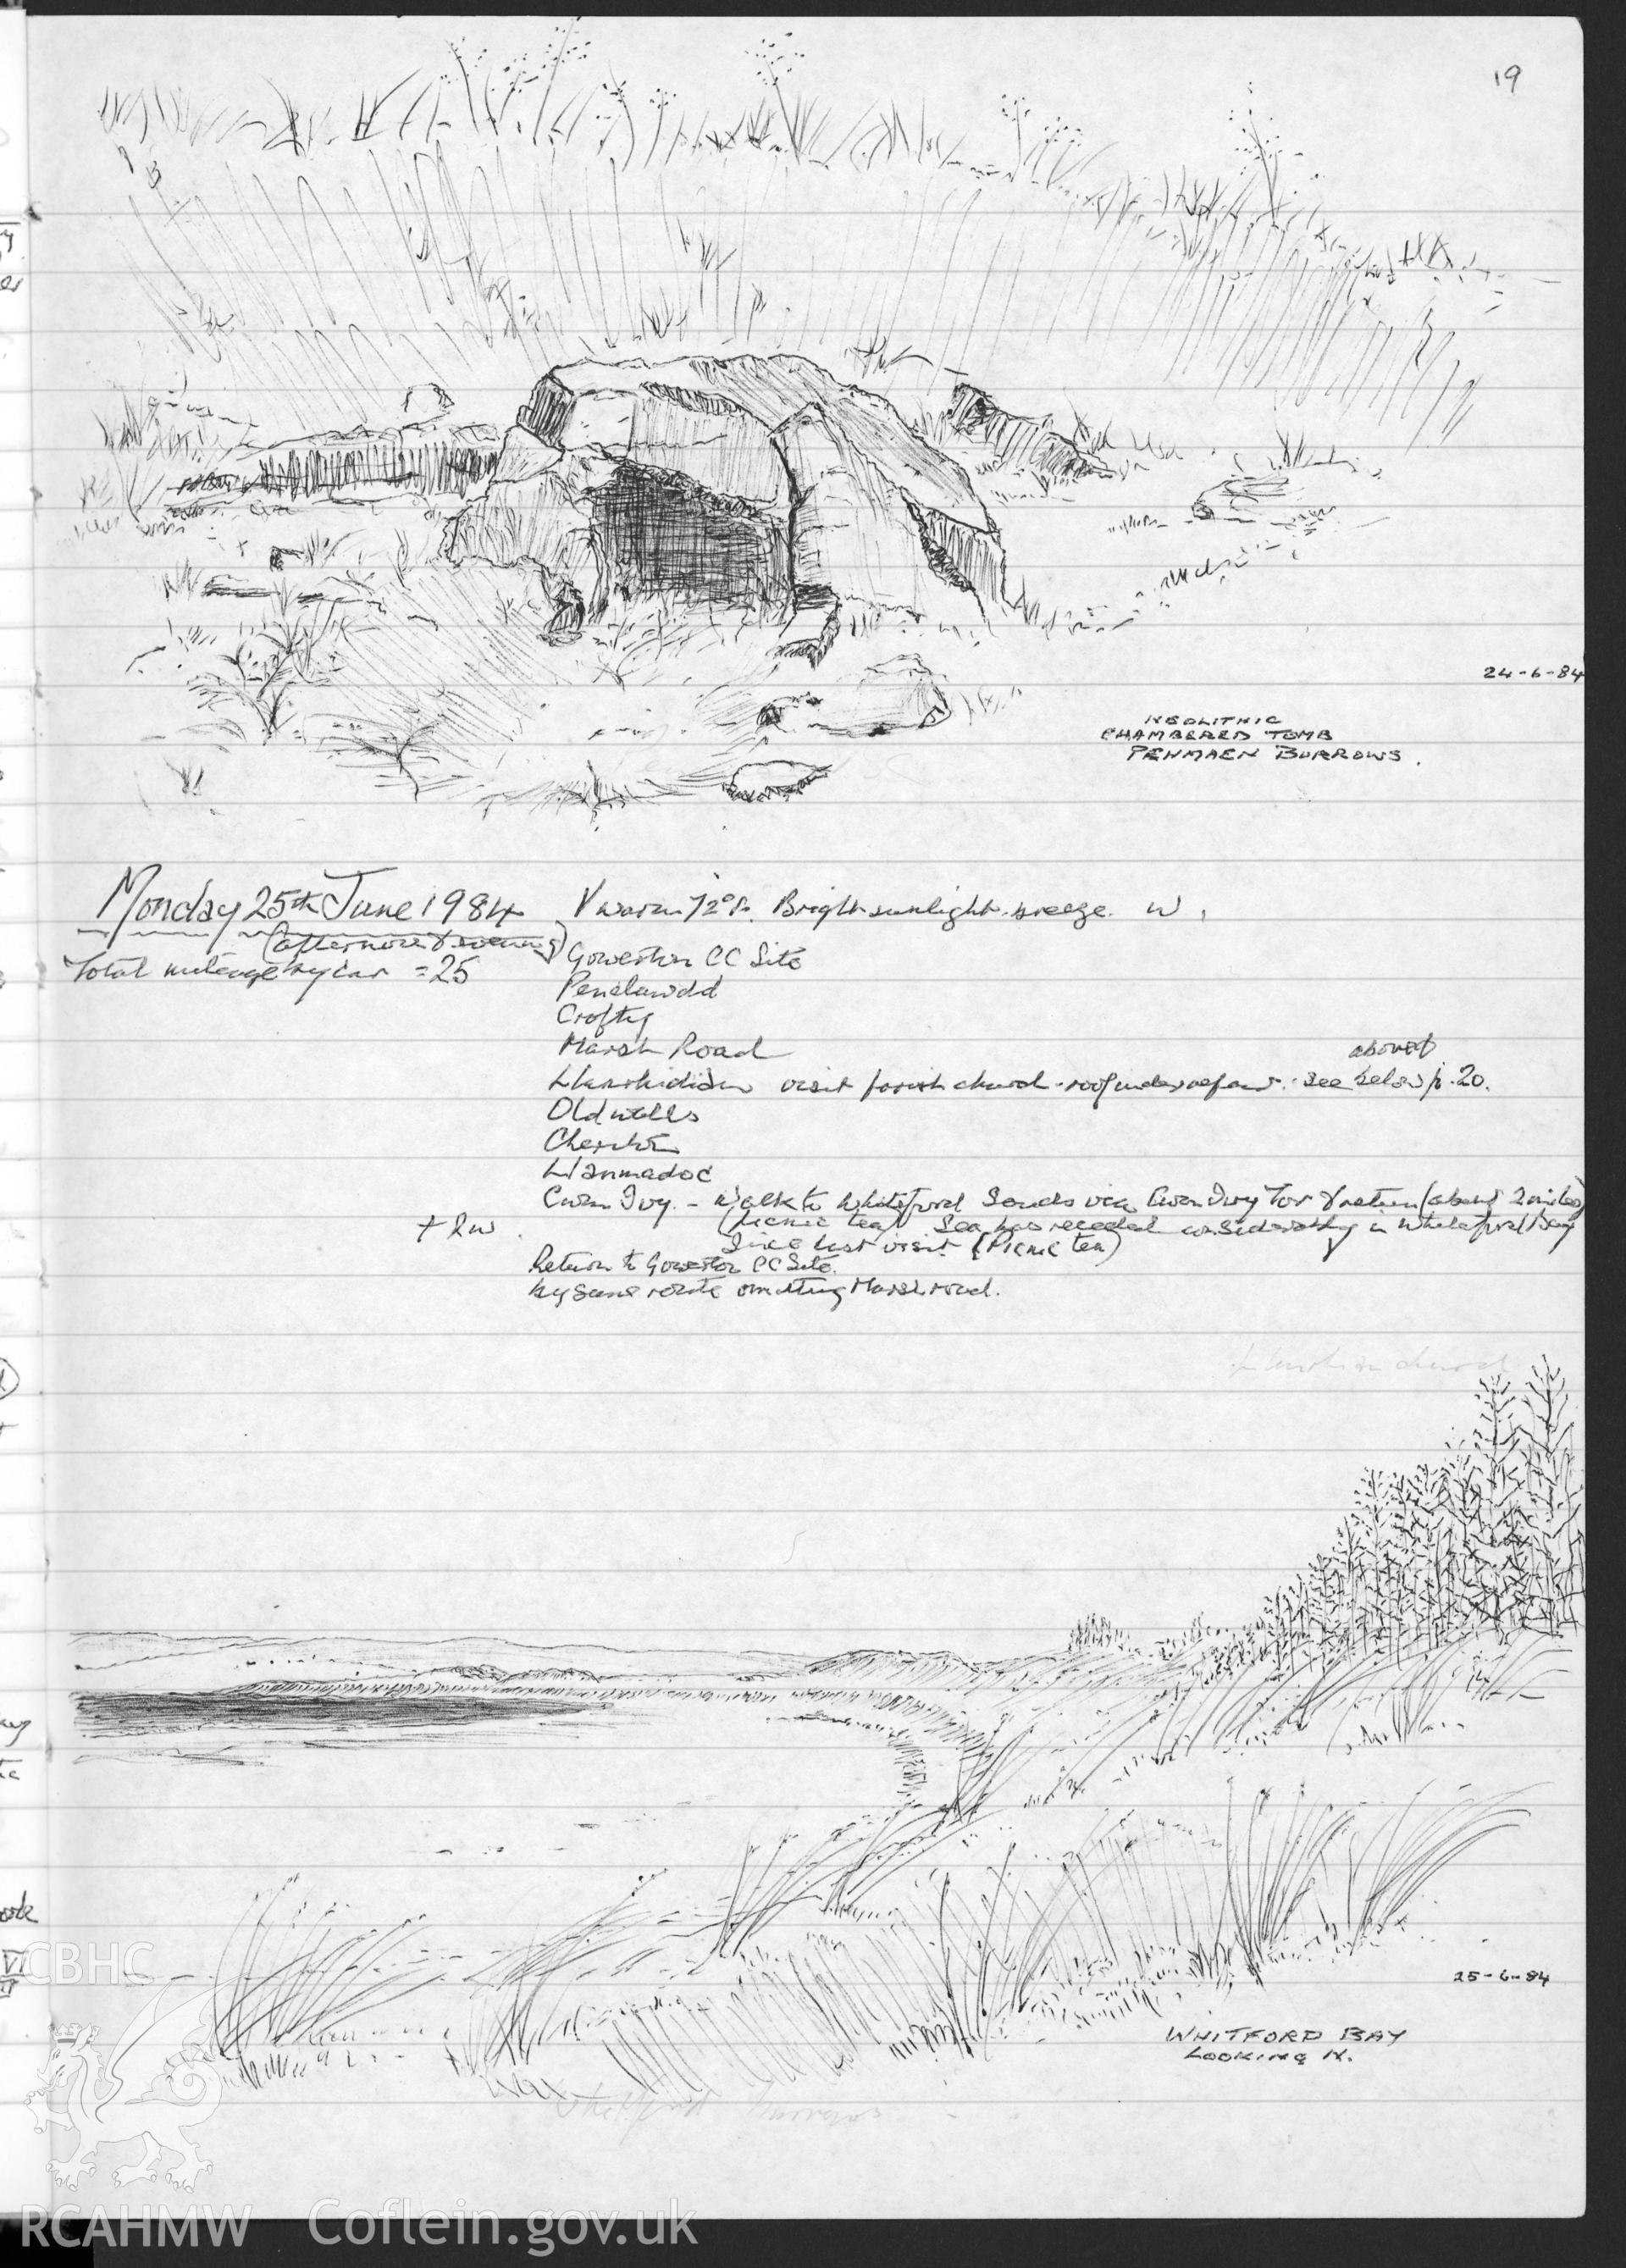 19
24-6-84
NEOLITHIC
CHAMBERED TOMB
PENMAEN BURROWS.
Monday 25th June 1984 V warm 72°F. Bright sunlight. breeze. W.
(afternoon & evening)
Total mileage by car = 25
Gowerton CC Site
Penclawdd
Crofty
Marsh Road
above
Llanrhidian visit parish church - roof under repair. See below p. 20.
Oldwalls
Cheriton
Llanmadoc
Cwm Ivy - Walk to Whiteford Sands via Cwm Ivy Tor & return (about 2 miles)
+ 2w. (Picnic tea) Sea has receded considerably in Whiteford Bay
since last visit (Picnic tea)
Return to Gowerton CC Site.
by same route omitting Marsh road.
church
25-6-84
WHITFORD BAY
LOOKING N.
Burrows
CBHC
RCAHMW Coflein.gov.uk